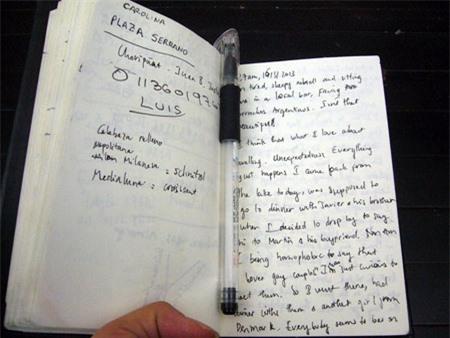 CAROLINA
PLAZA SERRANO
Juan B.
LUIS
Calabaza relleno
napolitana
Milanesa = schnitzel
Medialuna = croissant
tired, sleepy and sitting
in a local bar, facing two
Argentinos. Isn't that
beautiful?
I think that what I love about
travelling. Unexpectedness. Everything
just happens. I came back from
the lake today, was supposed to
go to dinner with Javier & his brother
when I decided to drop by to say
hi to Martin & his boyfriend. Not
I being homophobic to say that
lover gay couple I'm just curious to
meet them. So I went there, had
dinner with them & another girl from
Denmark. Everybody seems to be on